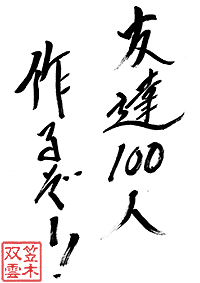 友達100人
作るぞー!
笠木
双雲